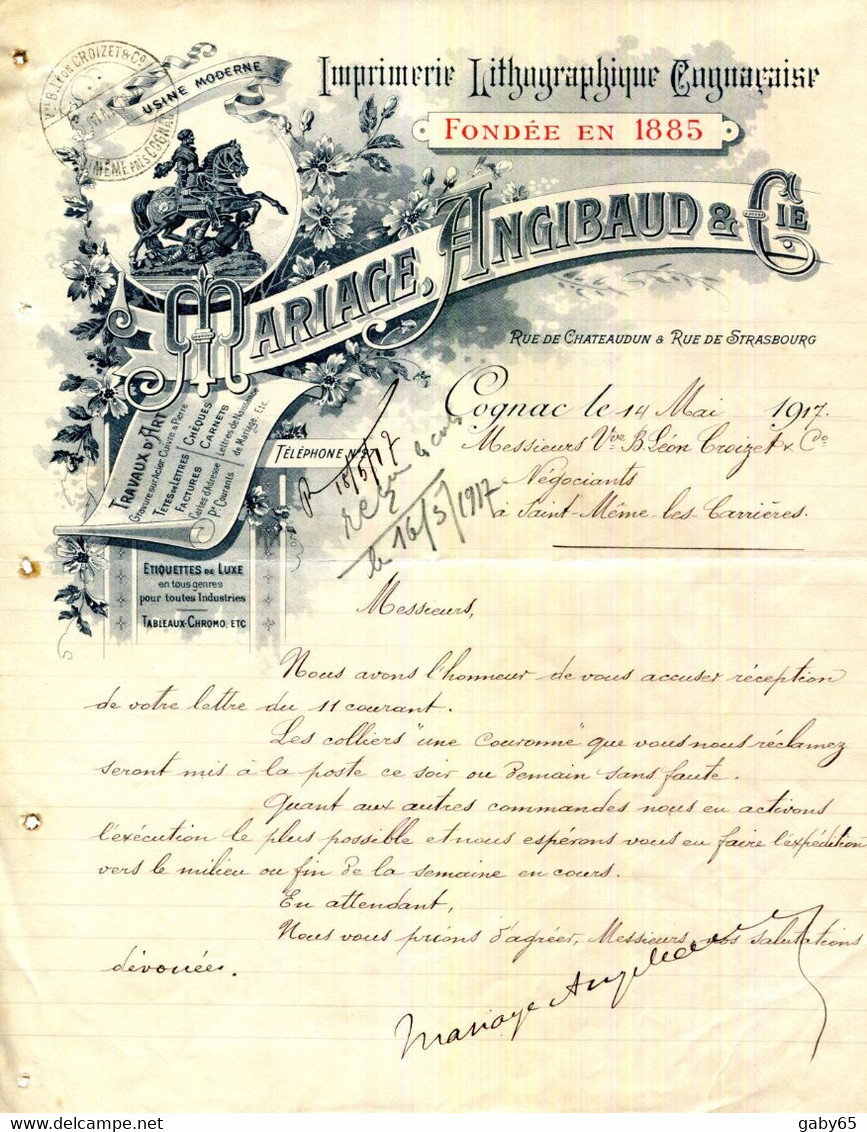 Vve B. Léon CROIZET & Co
St MÊME PRÈS COGNAC
USINE MODERNE
Imprimerie Lithographique Cognaçaise
FONDÉE EN 1885
MARIAGE, ANGIBAUD & CIE
RUE DE CHATEAUDUN & RUE DE STRASBOURG
TRAVAUX D'ART
Gravure sur Acier, Cuivre & Pierre
TÊTES DE LETTRES CHÈQUES
FACTURES CARNETS
Cartes d'Adresse Lettres de Naissance
Px Courants de Mariage, Etc.
TÉLÉPHONE N°
ETIQUETTES DE LUXE
en tous genres
pour toutes Industries
TABLEAUX-CHROMO, ETC
Cognac le 14 Mai 1917.
Messieurs Vve B. Léon Croizet & Co
Négociants
à Saint-Même-les-Carrières.
R 18/5/17
le 16/5/1917
Messieurs,
Nous avons l'honneur de vous accuser réception
de votre lettre du 11 courant.
Les colliers "une couronne" que vous nous réclamez
seront mis à la poste ce soir ou demain sans faute.
Quant aux autres commandes nous en activons
l'exécution le plus possible et nous espérons vous en faire l'expédition
vers le milieu ou fin de la semaine en cours.
En attendant,
Nous vous prions d'agréer, Messieurs, nos salutations
dévouées.
Mariage Angibaud
gaby65